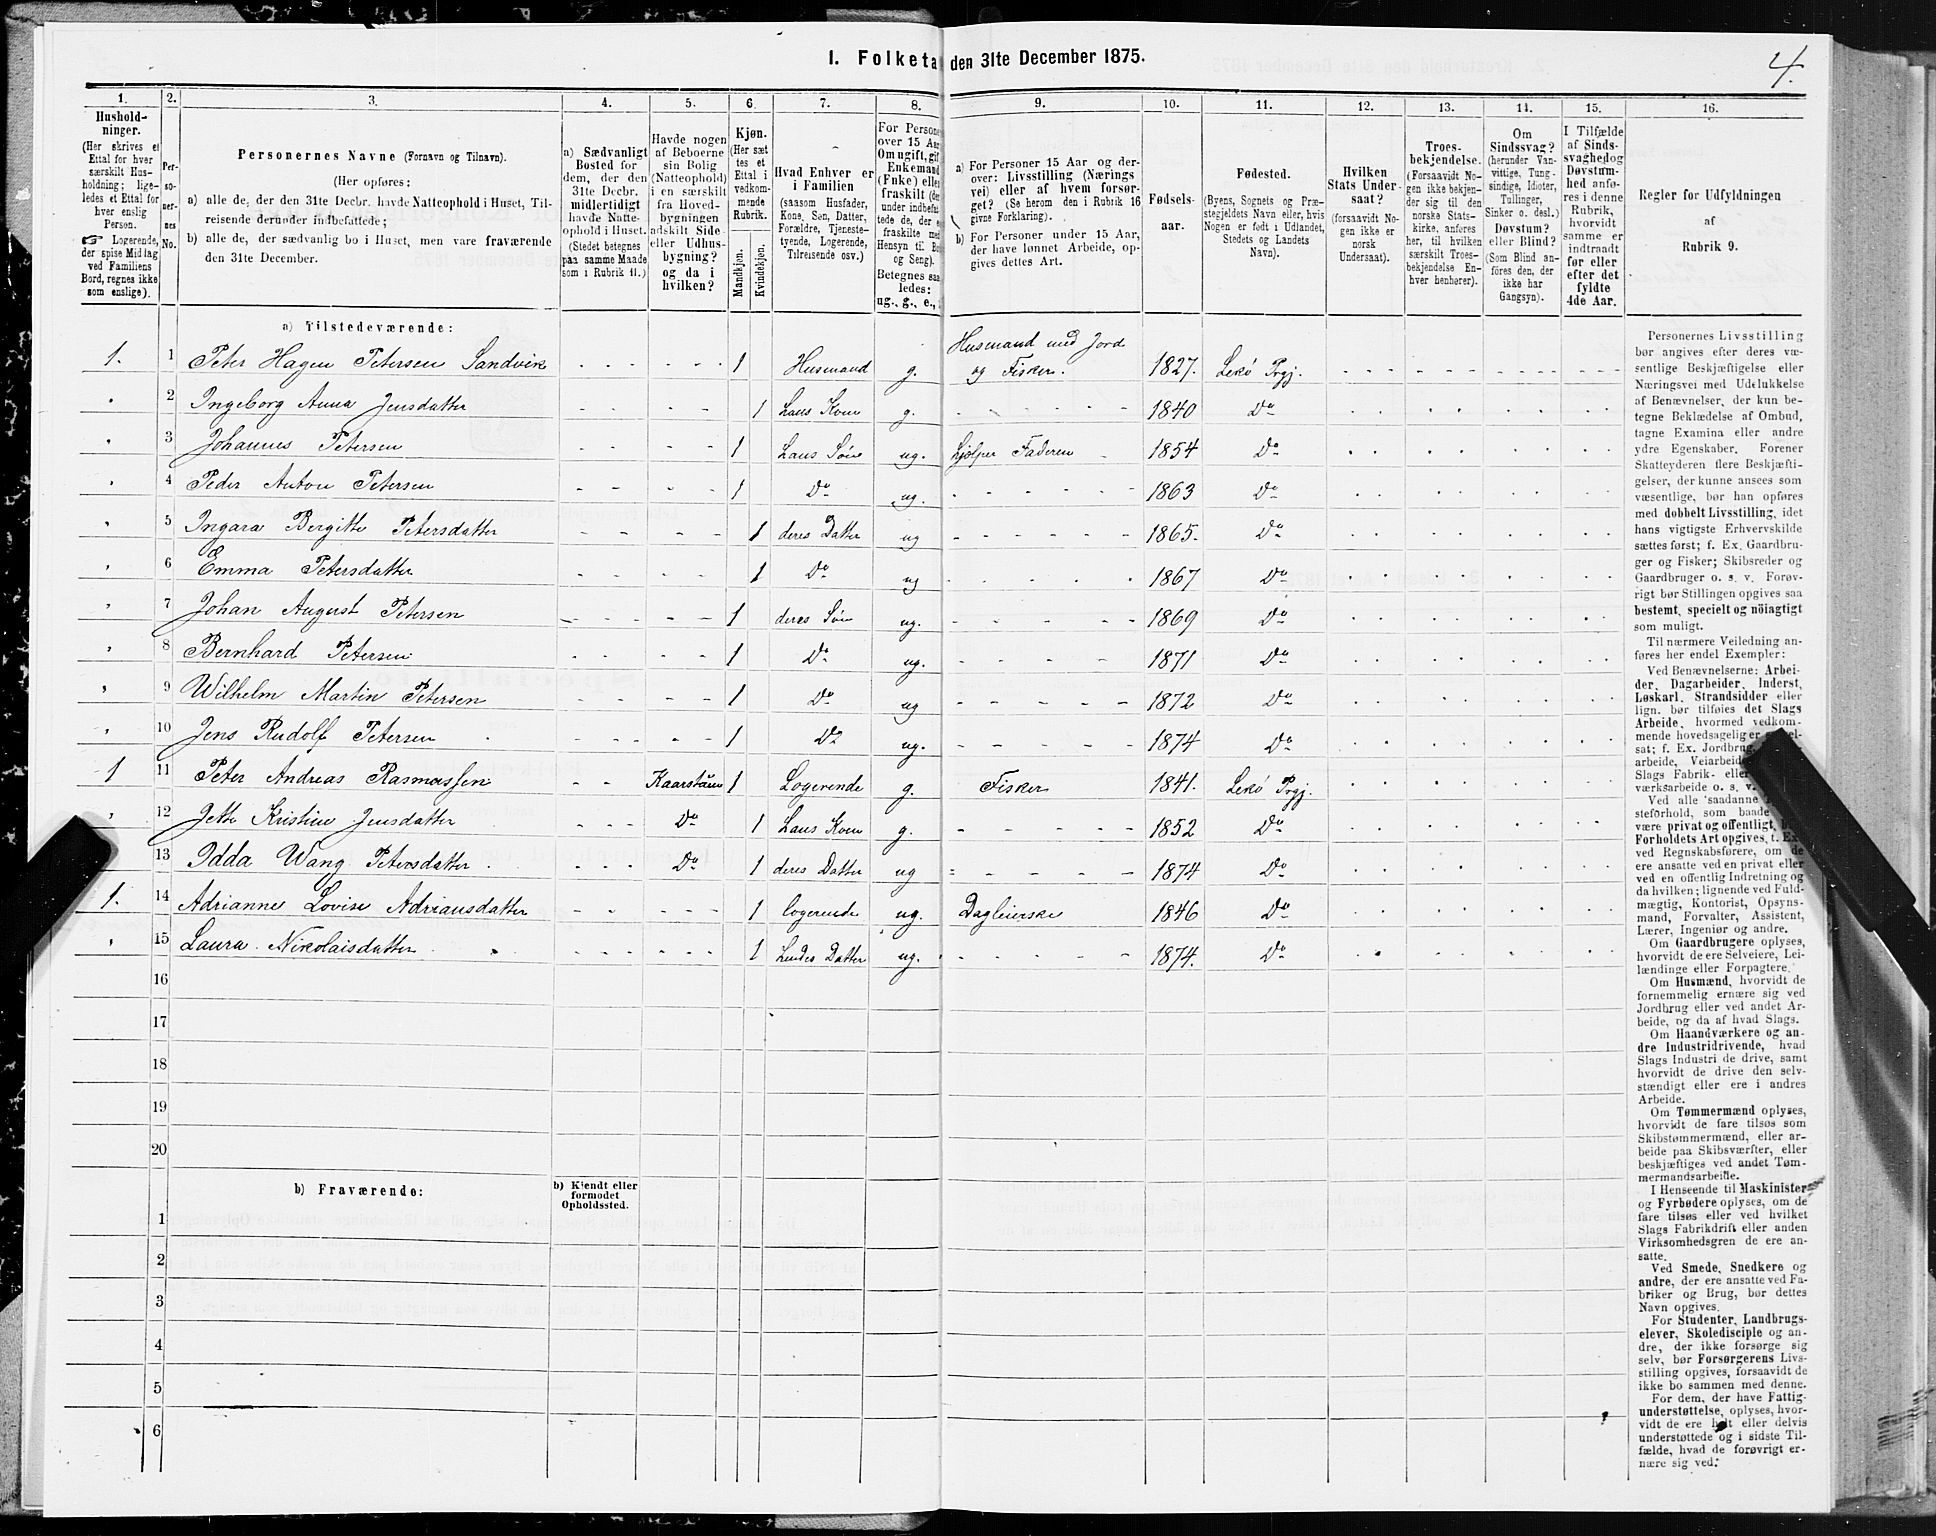 I. Folketa den 31te December 1875.
4.
1. 2. 3. 4. 5. 6. 7. 8. 9. 10. 11. 12. 13. 14. 15. 16.
Hushold-
ninger.
(Her skrives et
Ettal for hver
særskilt Hus-
holdning; lige-
ledes et Ettal for
hver enslig
Person.
☞ Logerende,
der spise Middag
ved Familiens
Bord, regnes ikke
som enslige).
Per-
so-
ner-
nes
No.
Personernes Navne (Fornavn og Tilnavn).
(Her opføres:
a) alle de, der den 31te Decbr. havde Natteophold i Huset, Til-
reisende derunder indbefattede;
b) alle de, der sædvanlig bo i Huset, men vare fraværende
den 31te December.
a) Sædvanligt
Bosted for
dem, der den
31te Decbr.
midlertidigt
havde Natte-
ophold i Huset.
(Stedet betegnes
paa samme Maade
som i Rubrik 11.)
Havde nogen
af Beboerne
sin Bolig
(Natteophold)
i en særskilt
fra Hoved-
bygningen
adskilt Side-
eller Udhus-
bygning?
og da i
hvilken?
Kjøn.
(Her sæt-
tes et
Ettal i
vedkom-
mende
Rubrik.
Mandkjøn.
Kvindekjøn.
Hvad Enhver er
i Familien
(saasom Husfader,
Kone, Søn, Datter,
Forældre, Tjeneste-
tyende, Logerende,
Tilreisende osv.)
For Persone
over 15 Aar
Om ugift, gif
Enkemand
(Enke) elle
fraskilt (de
under indbefat
tede de, der e
fraskilte me
Hensyn til Bo
og Seng).
Betegnes saa
ledes:
ug., g., e.,
a) For Personer 15 Aar og der-
over: Livsstilling (Nærings
vei) eller af hvem forsør-
get? (Se herom den i Rubrik 16
givne Forklaring).
b) For Personer under 15 Aar,
der have lønnet Arbeide, op-
gives dettes Art.
Fødsels-
aar.
Fødested.
(Byens, Sognets og Præ-
stegjeldets Navn eller, hvis
Nogen er født i Udlandet,
Stedets og Landets
Navn).
Hvilken
Stats Under-
saat?
(forsaavidt No-
gen ikke er
norsk
Undersaat).
Troes-
bekjendelse.
(Forsaavidt No-
gen ikke bekjen-
der sig til den
norske Stats-
kirke, anføres
her, til hvilken
særskilt Troes-
bekjendelse En-
hver henhører).
Om
Sindssvag?
(herunder Van-
vittige, Tung-
sindige, Idioter,
Tullinger,
Sinker o. desl.)
Døvstum?
eller Blind?
(Som Blind an-
føres den, der
ikke har
Gangsyn).
I Tilfælde
af Sinds-
svaghed og
Døvstum-
hed anfø-
res i denne
Rubrik,
hvorvidt
samme er
indtraadt
før eller
efter det
fyldte
4de Aar.
Regler for Udfyldningen
af
Rubrik 9.
a) Tilstedeværende:
1. 1 Peter Hagen Petersen Sandvik 1 Husmand g. Husmand med Jord
og Fisker. 1827. Lekø Prgj.
" 2 Ingeborg Anna Jensdatter 1 Hans Kone g. 1840 Do
" 3 Johannes Petersen 1 Hans Søn ug. hjelper Faderen 1854 Do
" 4 Peder Anton Petersen 1 Do ug. 1863 Do
" 5 Ingara Bergitte Petersdatter 1 deres Datter ug 1865. Do
" 6 Emma Petersdatter 1 Do ug 1867 Do
" 7 Johan August Petersen 1 deres Søn ug. 1869 Do
" 8 Bernhard Petersen 1 Do ug. 1871 Do
" 9 Wilhelm Martin Petersen 1 Do ug 1872 Do
" 10 Jens Rudolf Petersen 1 Do ug. 1874 Do
1 11 Peter Andreas Rasmussen Kaarstuen 1 Logerende g. Fisker 1841. Lekø Prgj.
" 12 Jette Kristine Jensdatter Do 1 Hans Kone g. 1852 Do
13 Idda Wang Petersdatter Do 1 deres Datter ug 1874 Do
1. 14 Adrianne Lovise Adriansdatter 1 logerende ug. Dagleierske 1846 Do
" 15 Laura Nikolaisdatter 1 Hendes Datter ug. 1874. Do
16
17
18
19
20
b) Fraværende:
b) Kjendt eller
formodet
Opholdssted.
1
2
3
4
5
6
Personernes Livsstilling
bør angives efter deres væ-
sentlige Beskjæftigelse eller
Næringsvei med Udelukkelse
af Benævnelser, der kun be-
tegne Beklædelse af Ombud,
tagne Examina eller andre
ydre Egenskaber. Forener
Skatteyderen flere Beskjæfti-
gelser, der kunne ansees som
væsentlige, bør han opføres
med dobbelt Livsstilling, idet
hans vigtigste Erhvervskilde
sættes først; f. Ex. Gaardbru-
ger og Fisker; Skibsreder og
Gaardbruger o. s. v. Forøv-
rigt bør Stillingen opgives saa
bestemt, specielt og nöiagtigt
som muligt.
Til nærmere Veiledning an-
føres her endel Exempler:
Ved Benævnelserne: Arbei-
der, Dagarbeider, Inderst,
Løskarl, Strandsidder eller
lign. bør tilføies det Slags
Arbeide, hvormed vedkom-
mende hovedsagelig er
sat; f. Ex. Jordbrug
arbeide, Veiarbeide
Slags Fabrik- eller
værksarbeide o. s. v.
Ved alle saadanne
steforhold, som baade
være privat og offentligt,
Forholdets Art opgives, t. Ex.
ved Regnskabsførere, om de
ere ansatte ved en privat eller
ved en offentlig Indretning og
da hvilken; lignende ved Fuld-
mægtig, Kontorist, Opsyns-
mand, Forvalter, Assistent,
Lærer, Ingeniør og andre.
Om Gaardbrugere oplyses,
hvorvidt de ere Selveiere, Lei-
lændinge eller Forpagtere.
Om Husmænd, hvorvidt de
fornemmelig ernære sig ved
Jordbrug eller ved andet Ar-
beide, og da af hvad Slags.
Om Haandværkere og an-
dre Industridrivende, hvad
Slags Industri de drive, samt
hvorvidt de drive den selv-
stændigt eller ere i andres
Arbeide.
Om Tømmermænd oplyses,
hvorvidt de fare tilsøs som
Skibstømmermænd, eller ar-
beide paa Skibsværfter, eller
beskjæftiges ved andet Tøm-
mermandsarbeide.
I Henseende til Maskinister
og Fyrbødere oplyses, om de
fare tilsøs eller ved hvilket
Slags Fabrikdrift eller anden
Virksomhedsgren de ere an-
satte.
Ved Smede, Snedkere og
andre, der ere ansatte ved Fa-
briker og Brug, bør dettes
Navn opgives.
For Studenter, Landbrugs-
elever, Skoledisciple og an-
dre, der ikke forsørge sig
selv, bør Forsørgerens Livs-
stilling opgives, forsaavidt de
ikke bo sammen med denne.
For dem, der have Fattig-
understøttelse, oplyses, hvor-
vidt de ere helt eller delvis
understøttede og i sidste Til-
fælde, hvad de forøvrigt er-
nære sig ved.